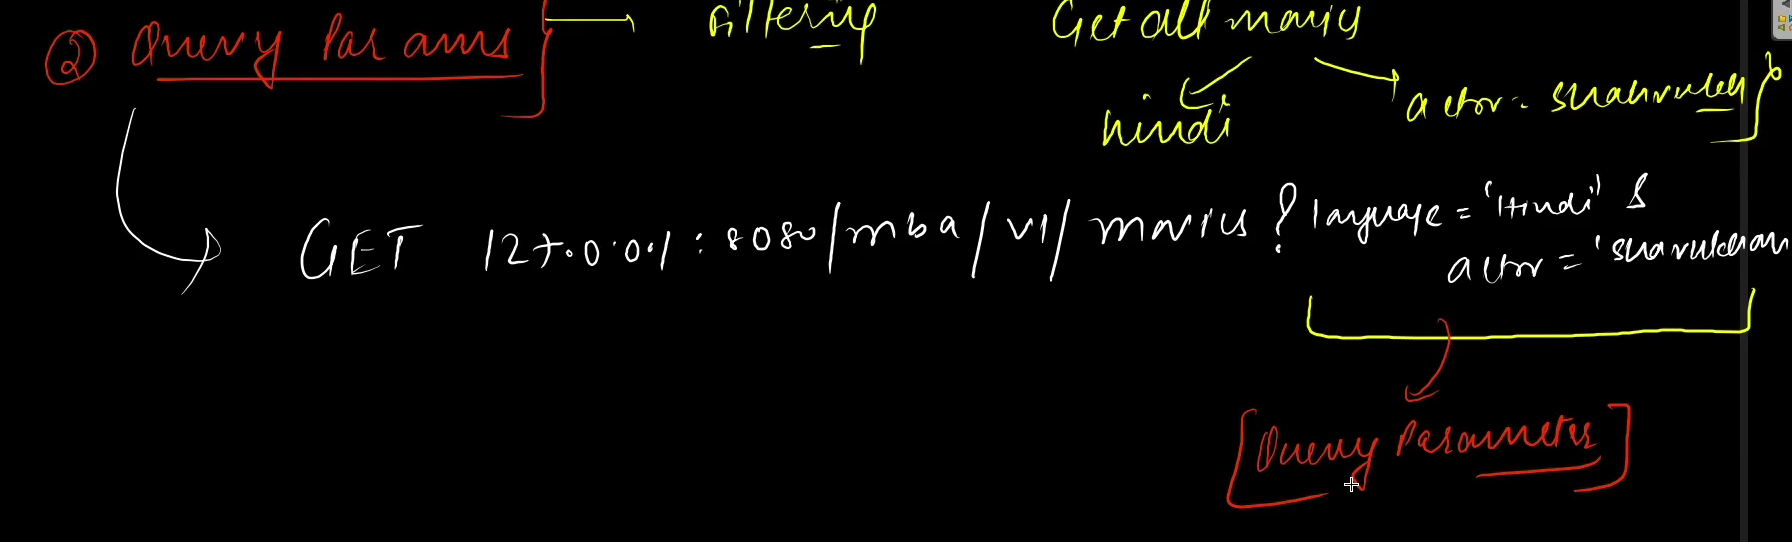 ② Query Params
Filtering
Get all movies
hindi
actor = shahrukh
GET 127.0.0.1 : 8080/mba/v1/movies ? language = 'Hindi' &
actor = 'sharukhan
[Query Parameter]